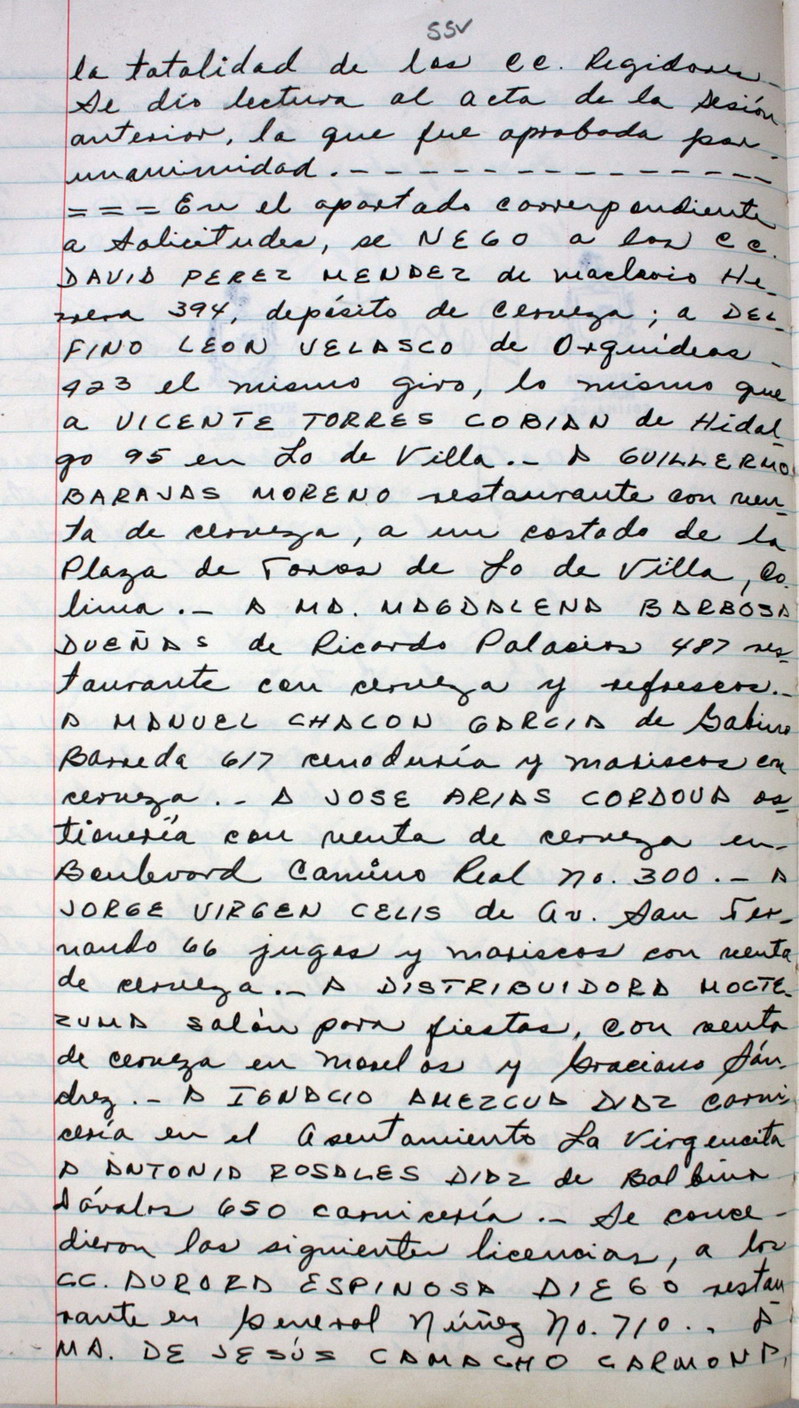 SSV
la totalidad de los CC. Regidores.-
Se dio lectura al acta de la Sesión
anterior, la que fue aprobada por
unanimidad.- - - - - - - - - - - - - - - -
= = = En el apartado correspondiente
a Solicitudes, se NEGO a los CC.
DAVID PEREZ MENDEZ de Maclovio He-
rrera 394, depósito de Cerveza; a DEL-
FINO LEON VELASCO de Orquídeas -
923 el mismo giro, lo mismo que
a VICENTE TORRES COBIAN de Hidal-
go 95 en Lo de Villa.- A GUILLERMO
BARAJAS MORENO restaurante con ven-
ta de cerveza, a un costado de la
Plaza de Toros de Lo de Villa, Co-
lima.- A MA. MAGDALENA BARBOSA
DUEÑAS de Ricardo Palacios 487 res-
taurante con cerveza y refrescos.-
A MANUEL CHACON GARCIA de Gabino
Barreda 617 cenaduría y mariscos con
cerveza.- A JOSE ARIAS CORDOVA os-
tionería con venta de cerveza en-
Boulevard Camino Real No. 300.- A
JORGE VIRGEN CELIS de Av. San Fer-
nando 66 jugos y mariscos con venta
de cerveza.- A DISTRIBUIDORA MOCTE-
ZUMA salón para fiestas, con venta
de cerveza en Morelos y Graciano Sán-
chez.- A IGNACIO AMEZCUA DIAZ carni-
cería en el Asentamiento La Virgencita
A ANTONIA ROSALES DIAZ de Balbino
Dávalos 650 carnicería.- Se conce-
dieron las siguientes licencias, a los
CC. AURORA ESPINOSA DIEGO restau
rante en General Núñez No. 710.- A
MA. DE JESÚS CAMACHO CARMONA,